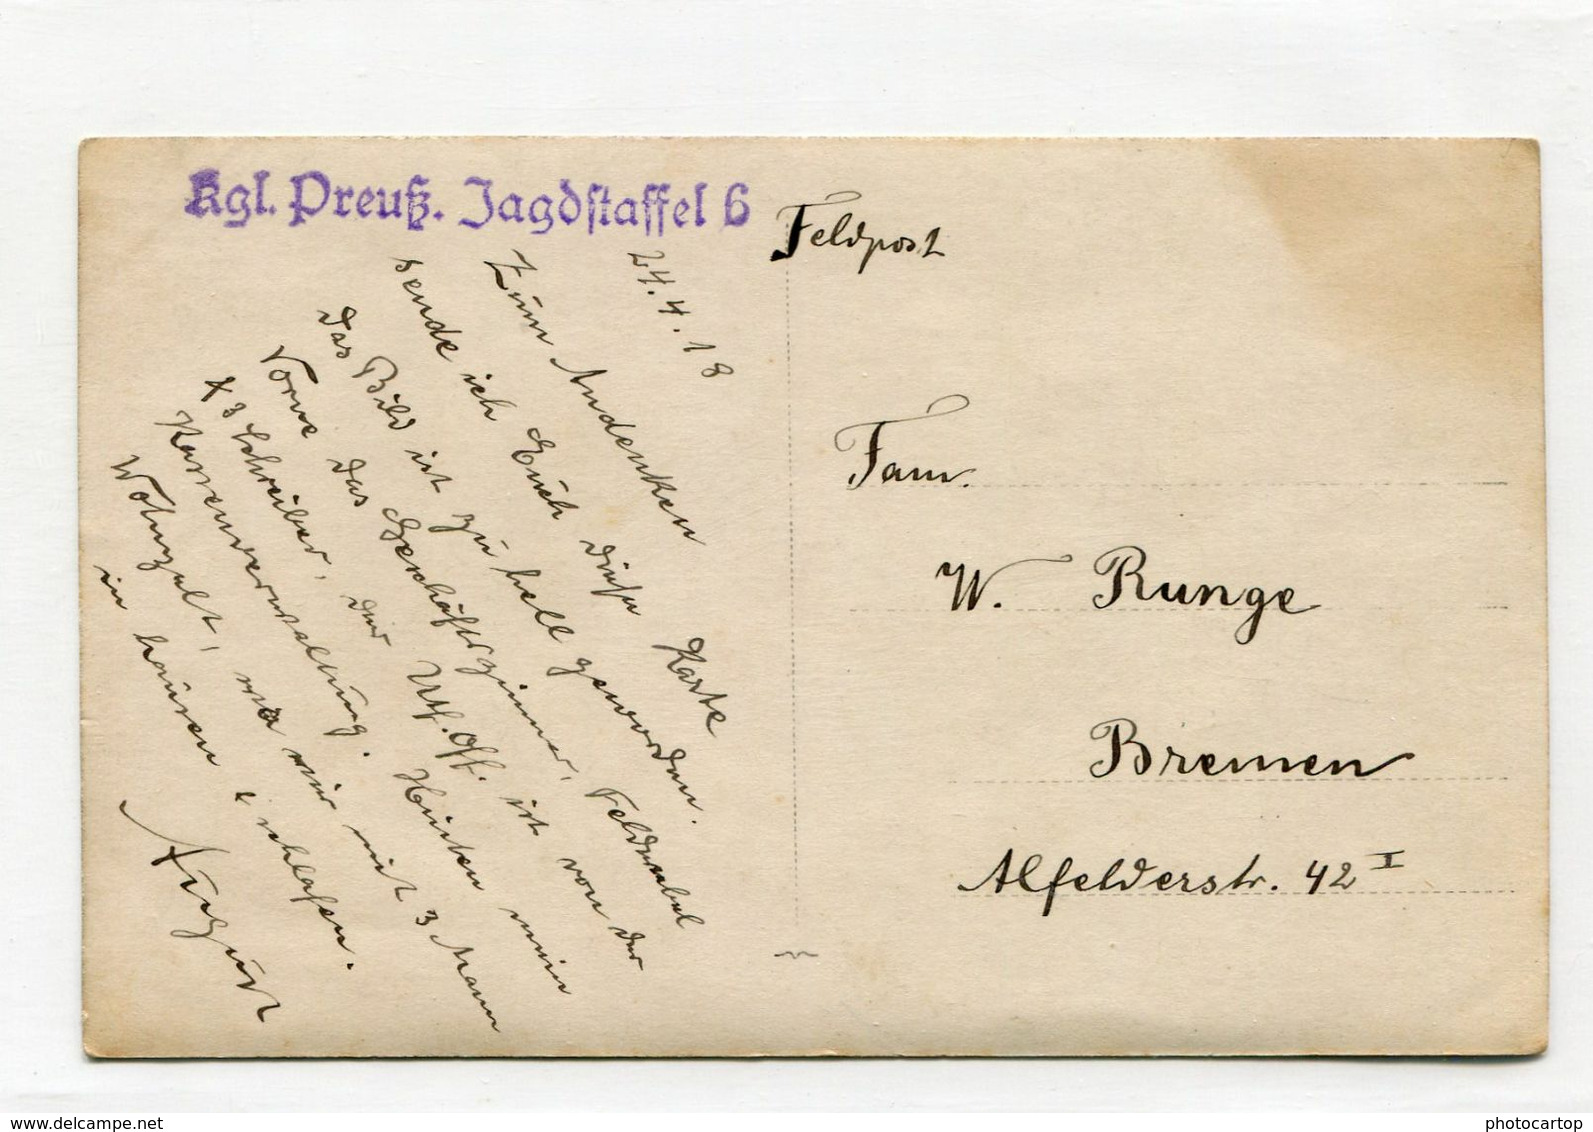 Kgl. Preuß. Jagdstaffel 6
24.4.18
Zum Andenken
sende ich Euch diese Karte
das Bild ist zu hell geworden.
Vorne das Geschäftszimmer, Feldwebel
+ 3 Schreiber, der Utf. Off. ist von der
Kassenverwaltung. Hinten mein
Wohnzelt, wo wir mit 3 Mann
in hausen + schlafen.
August
Feldpost
Fam.
W. Runge
Bremen
Alfelderstr. 42 I
www.delcampe.net
photocartop